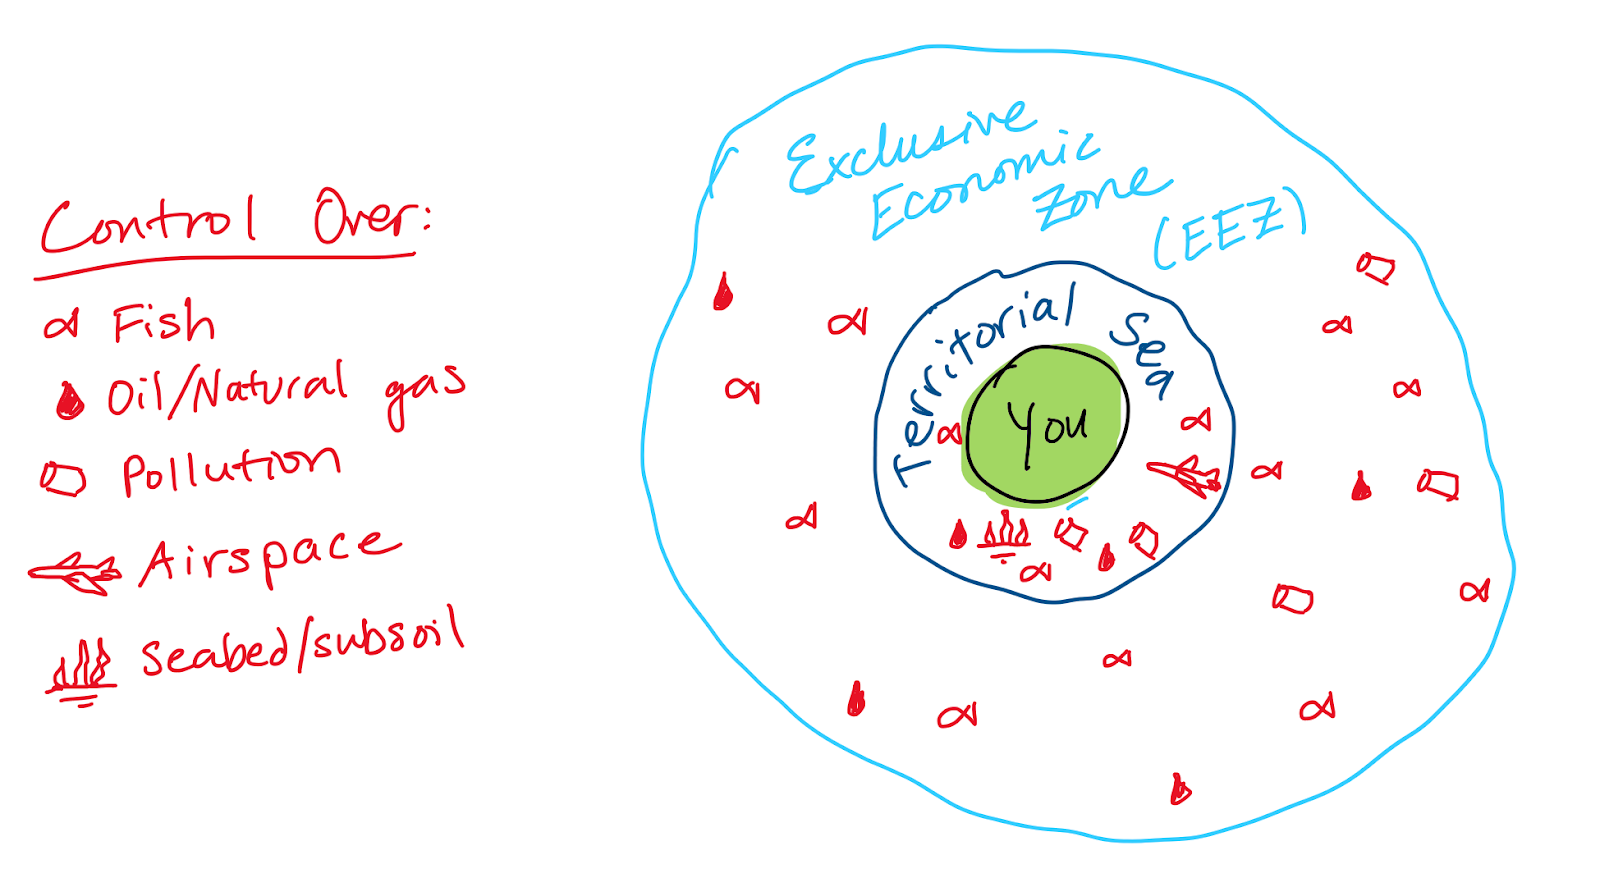 Control Over:
Fish
Oil/Natural gas
Pollution
Airspace
Seabed/subsoil
Exclusive
Economic
Zone
(EEZ)
Territorial Sea
You